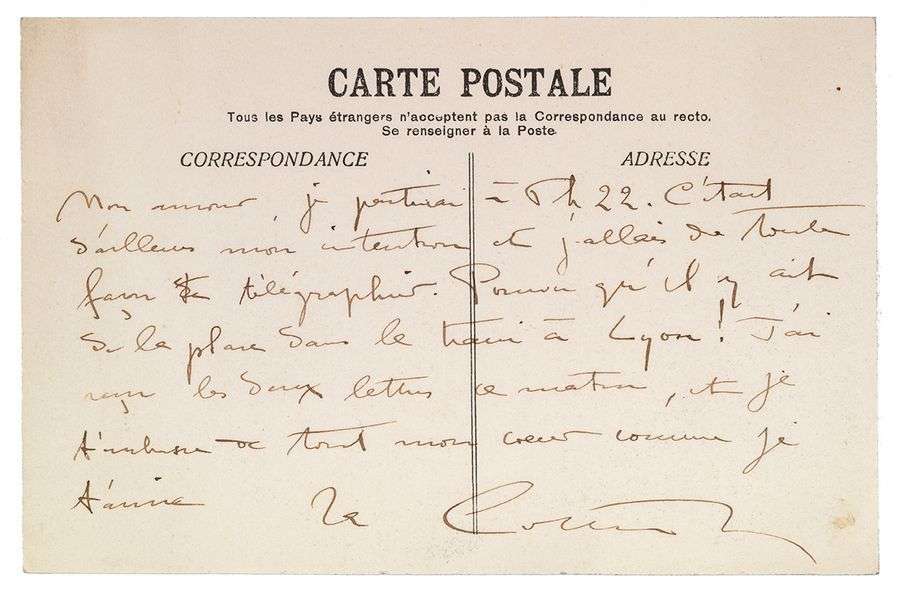 CARTE POSTALE
Tous les Pays étrangers n'acceptent pas la Correspondance au recto.
Se renseigner à la Poste
CORRESPONDANCE
ADRESSE
Mon amour, je partirai à 7h 22. C'était
d'ailleurs mon intention et j'allais de toute
façon te télégraphier. Pourvu qu'il y ait
de la place dans le train à Lyon! J'ai
reçu les deux lettres ce matin, et je
t'embrasse de tout mon cœur comme je
t'aime